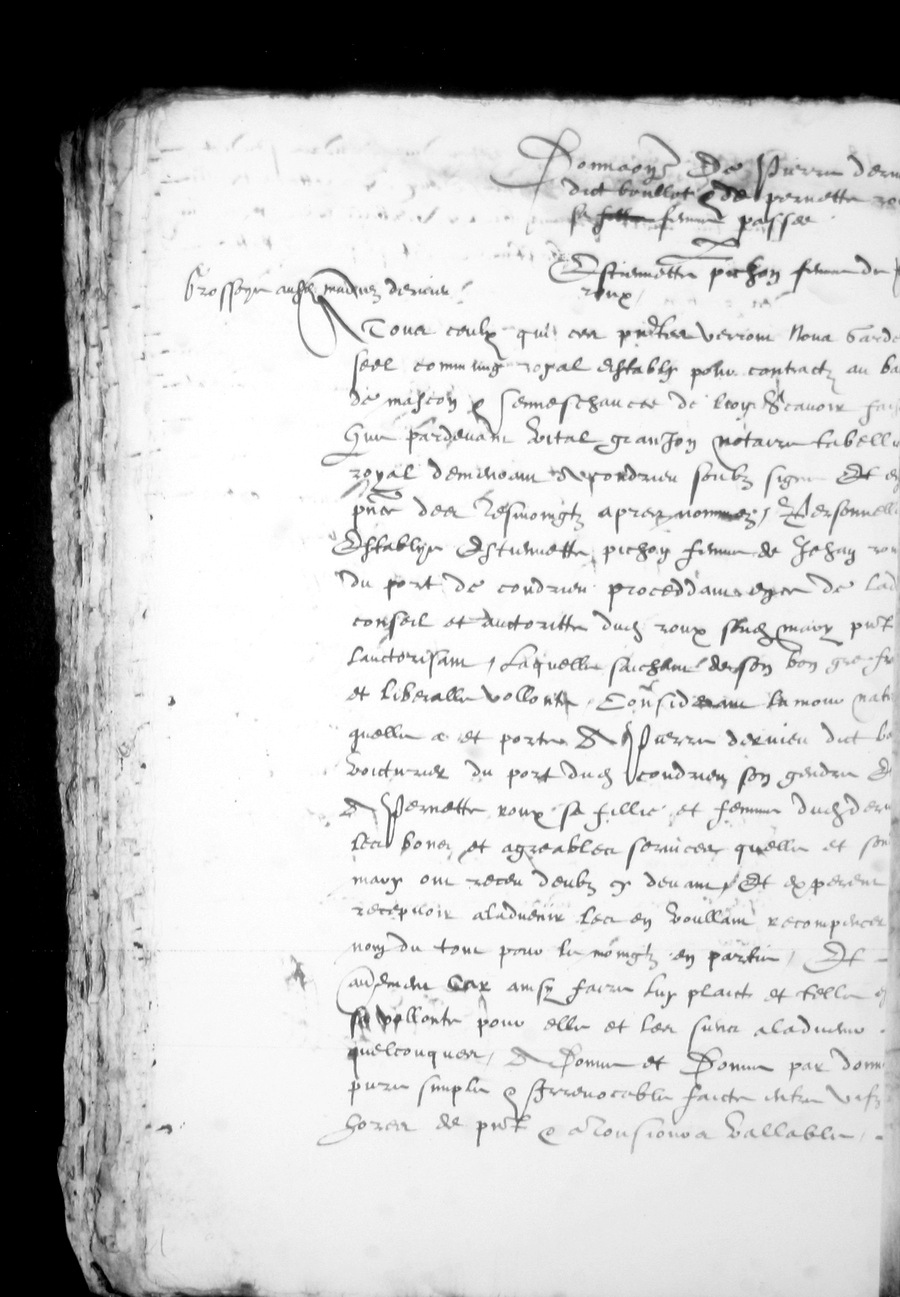 Donnaoń De Pierre derv
dict boullot & de pernette ro
sa femme passee
Estiennette pichon femme du
roux
Grossoyee audict dervieu
A Tous ceulx qui ces pntes verront Nous Garde
seel commung royal establir pour contractz au ba
de mascon & senneschaucee de lion Scavoir fai
Que pardevant Vital granjon notaire tabelli
royal demeurant condrieu soubz signe Et en
pnce des tesmoingtz apres nommez, Personnelle
Establye Estiennette pichon femme de Jehan rou
du port de condrieu proceddant de lad
conseil et auctoritte dud roux sond mary pnt
lauctorisant, Laquelle saichant de son bon gre fr
et liberalle vollonte, Considerant lamour natu
quelle a et porte A Pierre dervieu dict bo
voicturier du port dud condrieu son gendre Et
A Pernette roux sa fillie et femme dud derv
les bons et agreables services quelle et son
mary ont receu deulx cy devant, Et experent
recepvoir aladvenir les en voullant recompencer
non du tout pour le moingtz en partie, Et
aussi car ainsy faire luy plaict et telle e
sa vollonte pour elle et les siens aladvenir
quelconques, A Donne et Donne par donna
pure simple & Irrevocable faicte entre vifz
hores de pnt & a Tousiours vallable,